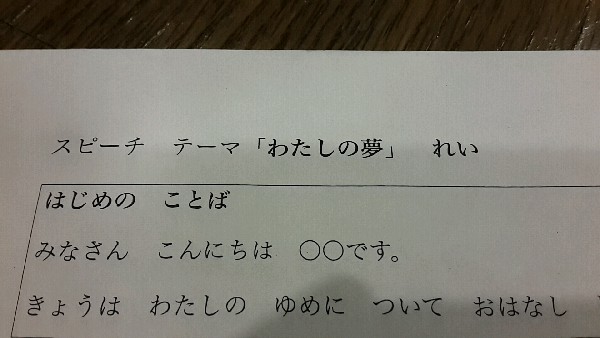 スピーチ　テーマ「わたしの夢」　れい
はじめの　ことば
みなさん　こんにちは　〇〇です。
きょうは　わたしの　ゆめに　ついて　おはなし